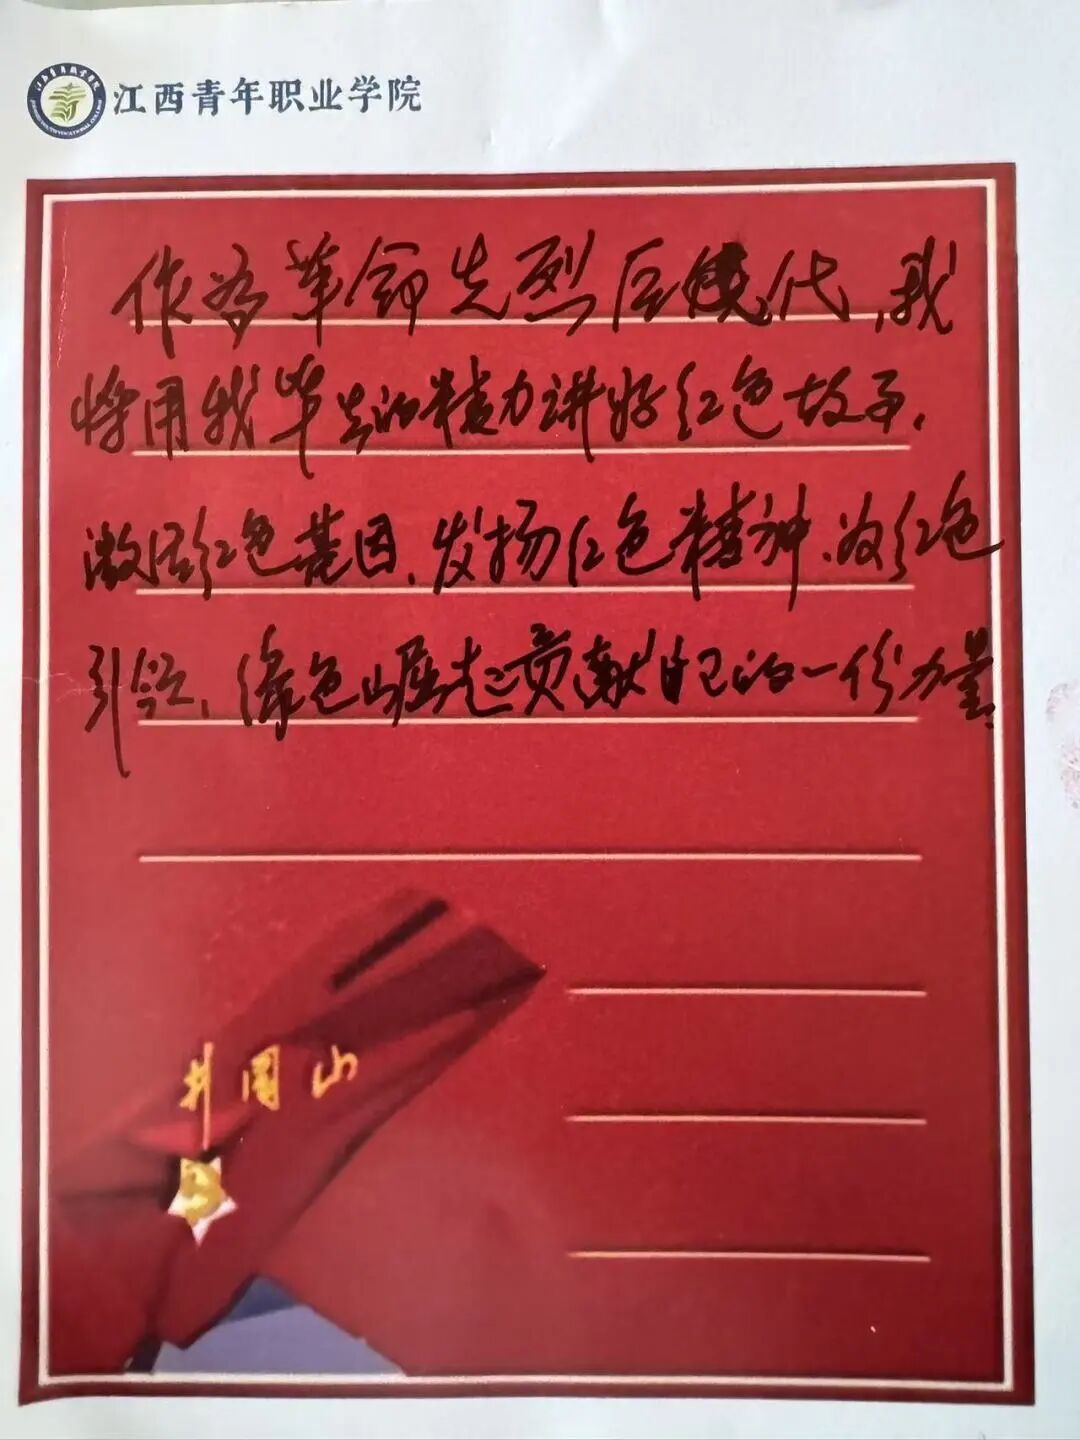 江西青年职业学院
作为革命先烈后代，我
将用我毕生的精力讲好红色故事，
激活红色基因，发扬红色精神，为红色
引领，绿色崛起贡献自己的一份力量。
井冈山